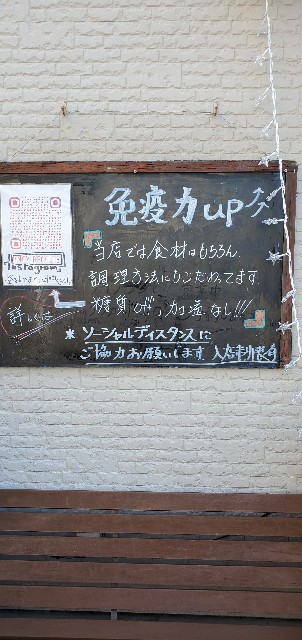 免疫力up
当店では食材はもちろん、
調理方法にもこだわってます。
Instagram
詳しくは
＊ソーシャルディスタンスに
ご協力お願いします 入店制限有